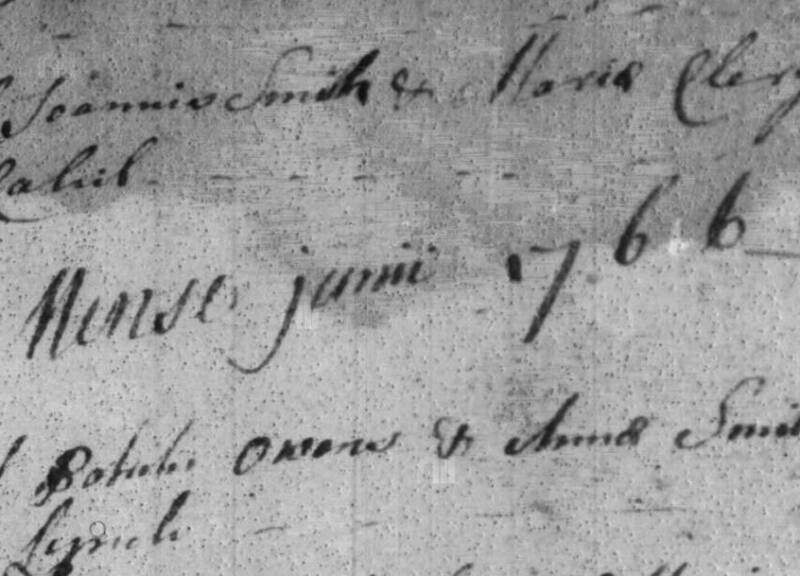 Joannis Smith & Mariæ Clery
Cahil
Mense junii 1766
Patritii Owens & Annæ Smi
Lynch